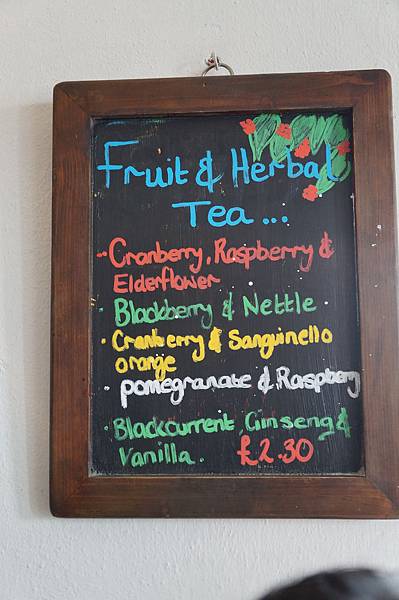 Fruit & Herbal
Tea...
· Cranberry, Raspberry &
Elderflower
· Blackberry & Nettle
· Cranberry & Sanguinello
orange
· pomegranate & Raspberry
· Blackcurrent, Ginseng &
Vanilla. £2.30